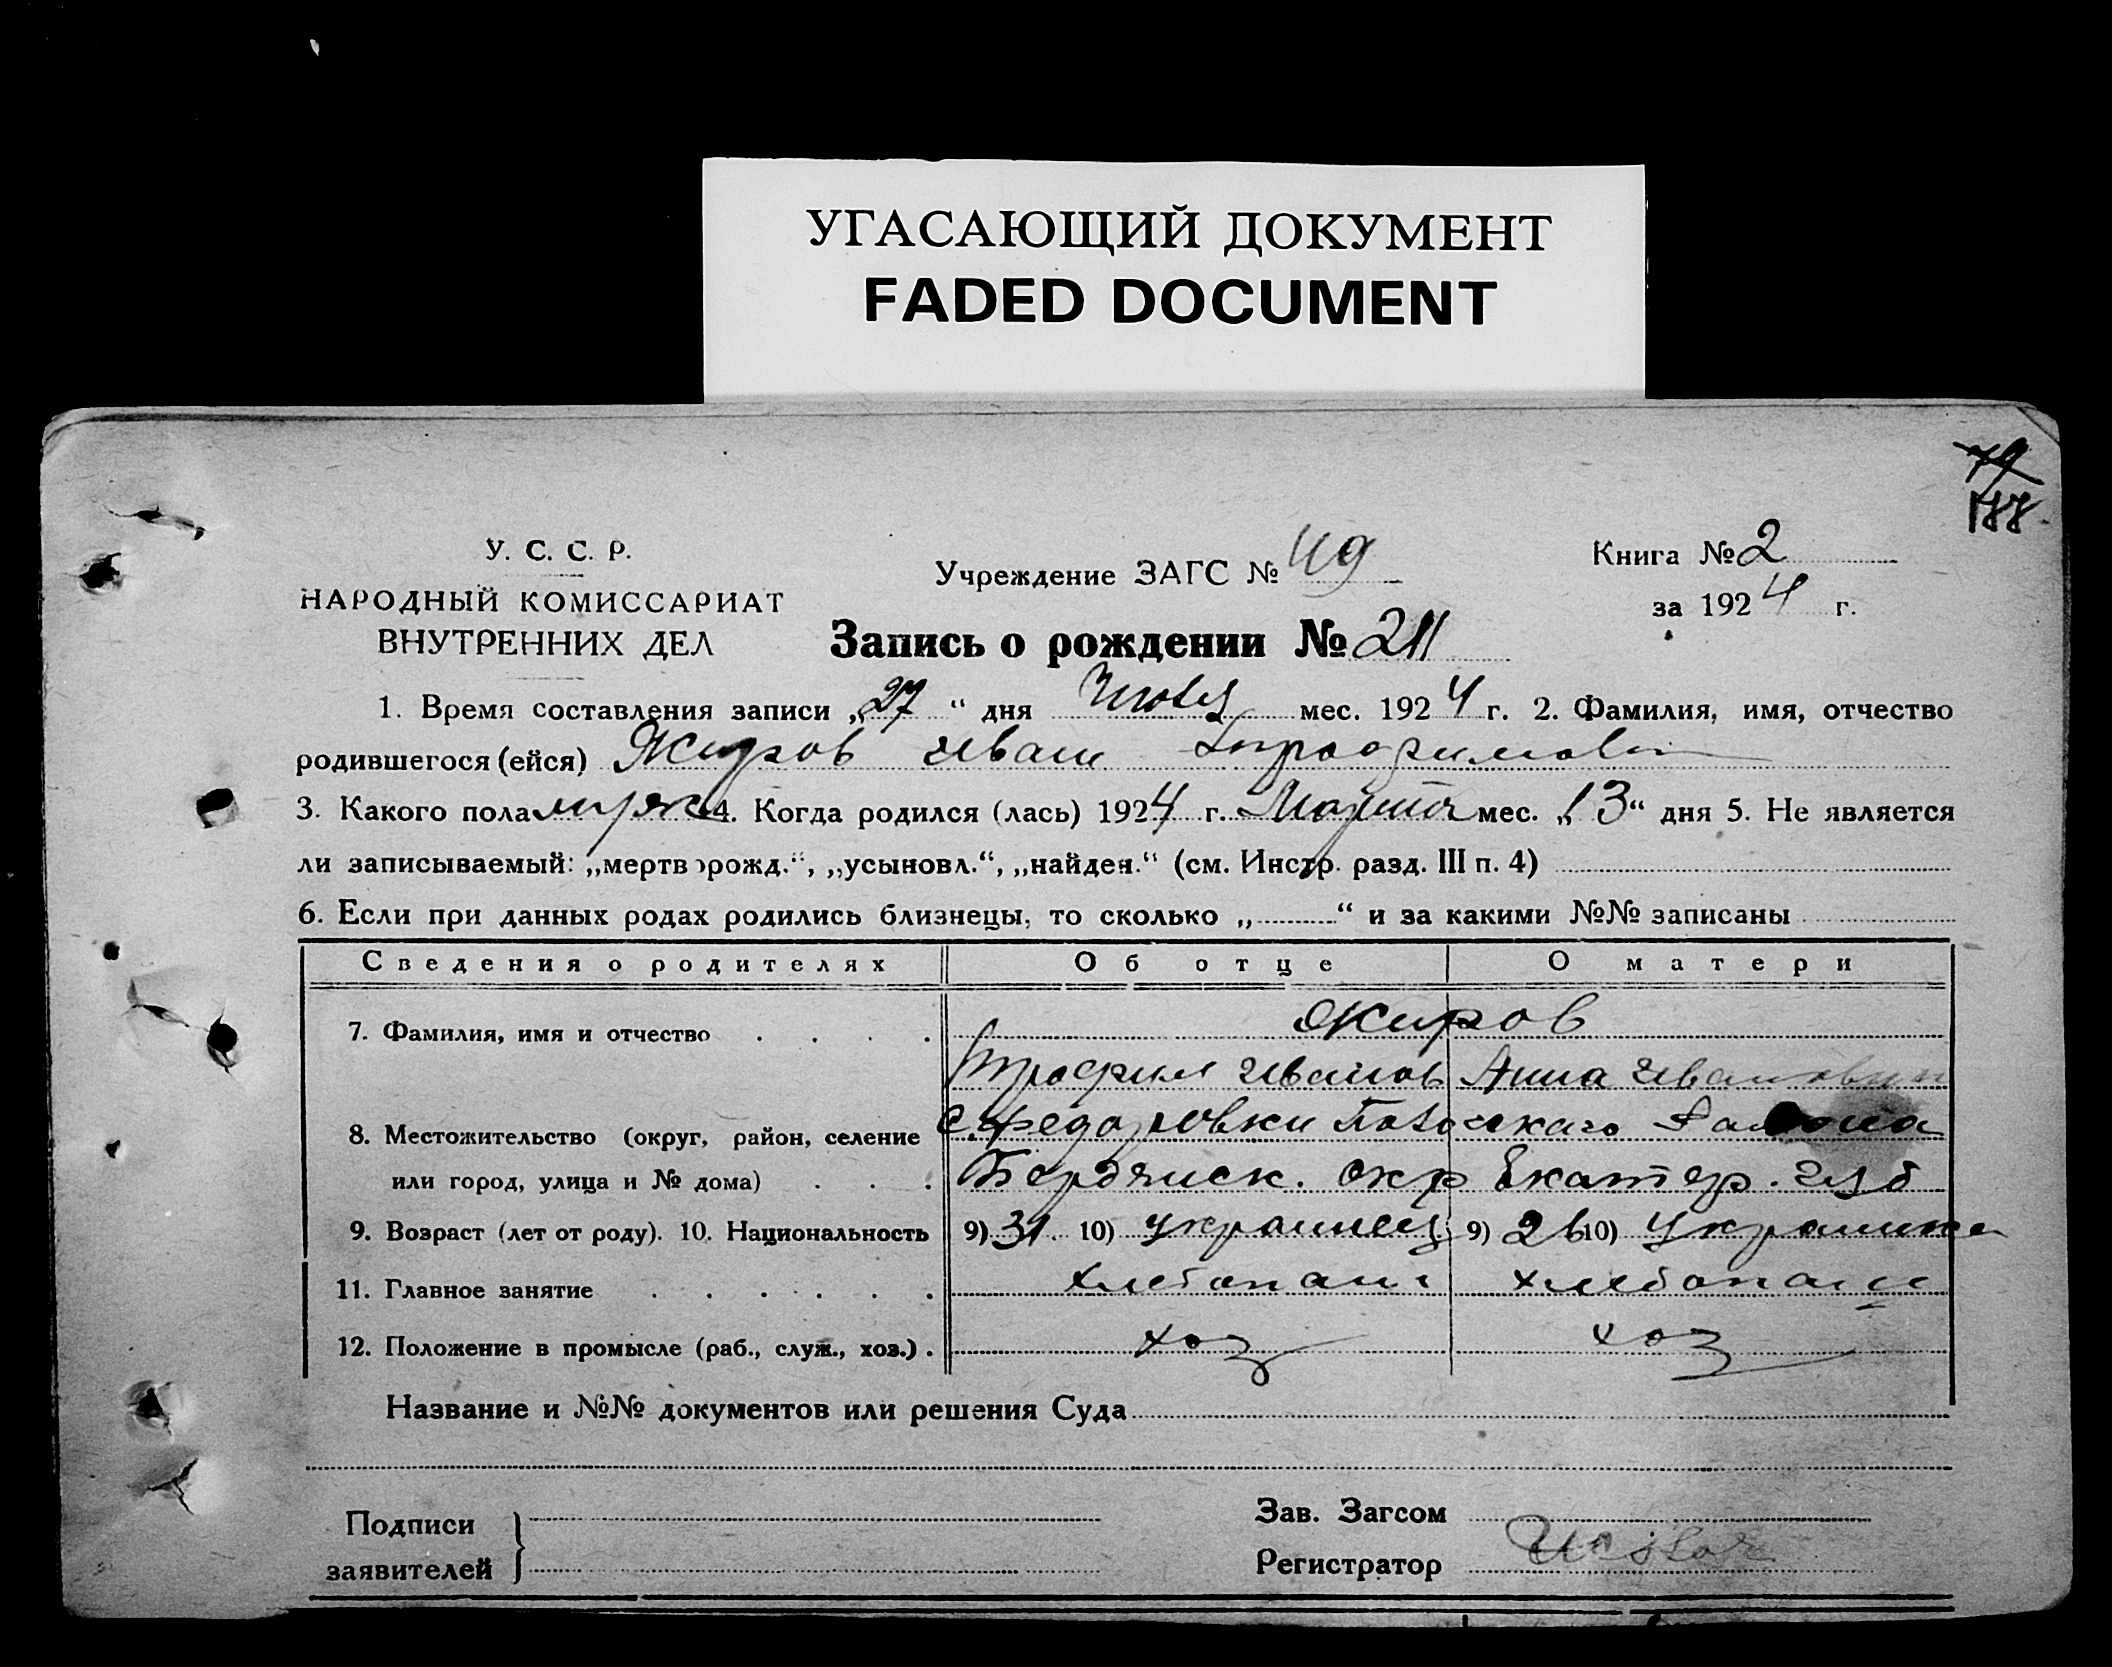 УГАСАЮЩИЙ ДОКУМЕНТ
FADED DOCUMENT
79
188
У. С. С. Р.
НАРОДНЫЙ КОМИССАРИАТ
ВНУТРЕННИХ ДЕЛ
Учреждение ЗАГС №
Книга № 2
за 1924 г.
Запись о рождении № 211
1. Время составления записи „27“ дня мес. 1924 г. 2. Фамилия, имя, отчество
родившегося (ейся) Жиров Иван Трофимович
3. Какого пола муж 4. Когда родился (лась) 1924 г. Марта мес. „13“ дня 5. Не является
ли записываемый: „мертворожд.“, „усыновл.“, „найден.“ (см. Инстр. разд. III п. 4)
6. Если при данных родах родились близнецы, то сколько „ “ и за какими №№ записаны
Сведения о родителях Об отце О матери
7. Фамилия, имя и отчество Жиров
Трофим Иванов Анна Ивановна
8. Местожительство (округ, район, селение с. Федоровки района
или город, улица и № дома) Бердянск. окр Екатер. губ
9. Возраст (лет от роду). 10. Национальность 9) 31. 10) украинец 9) 26 10) Украинка
11. Главное занятие хлебопаш хлебопаш
12. Положение в промысле (раб., служ., хоз.) хоз хоз
Название и №№ документов или решения Суда
Подписи
заявителей
Зав. Загсом
Регистратор